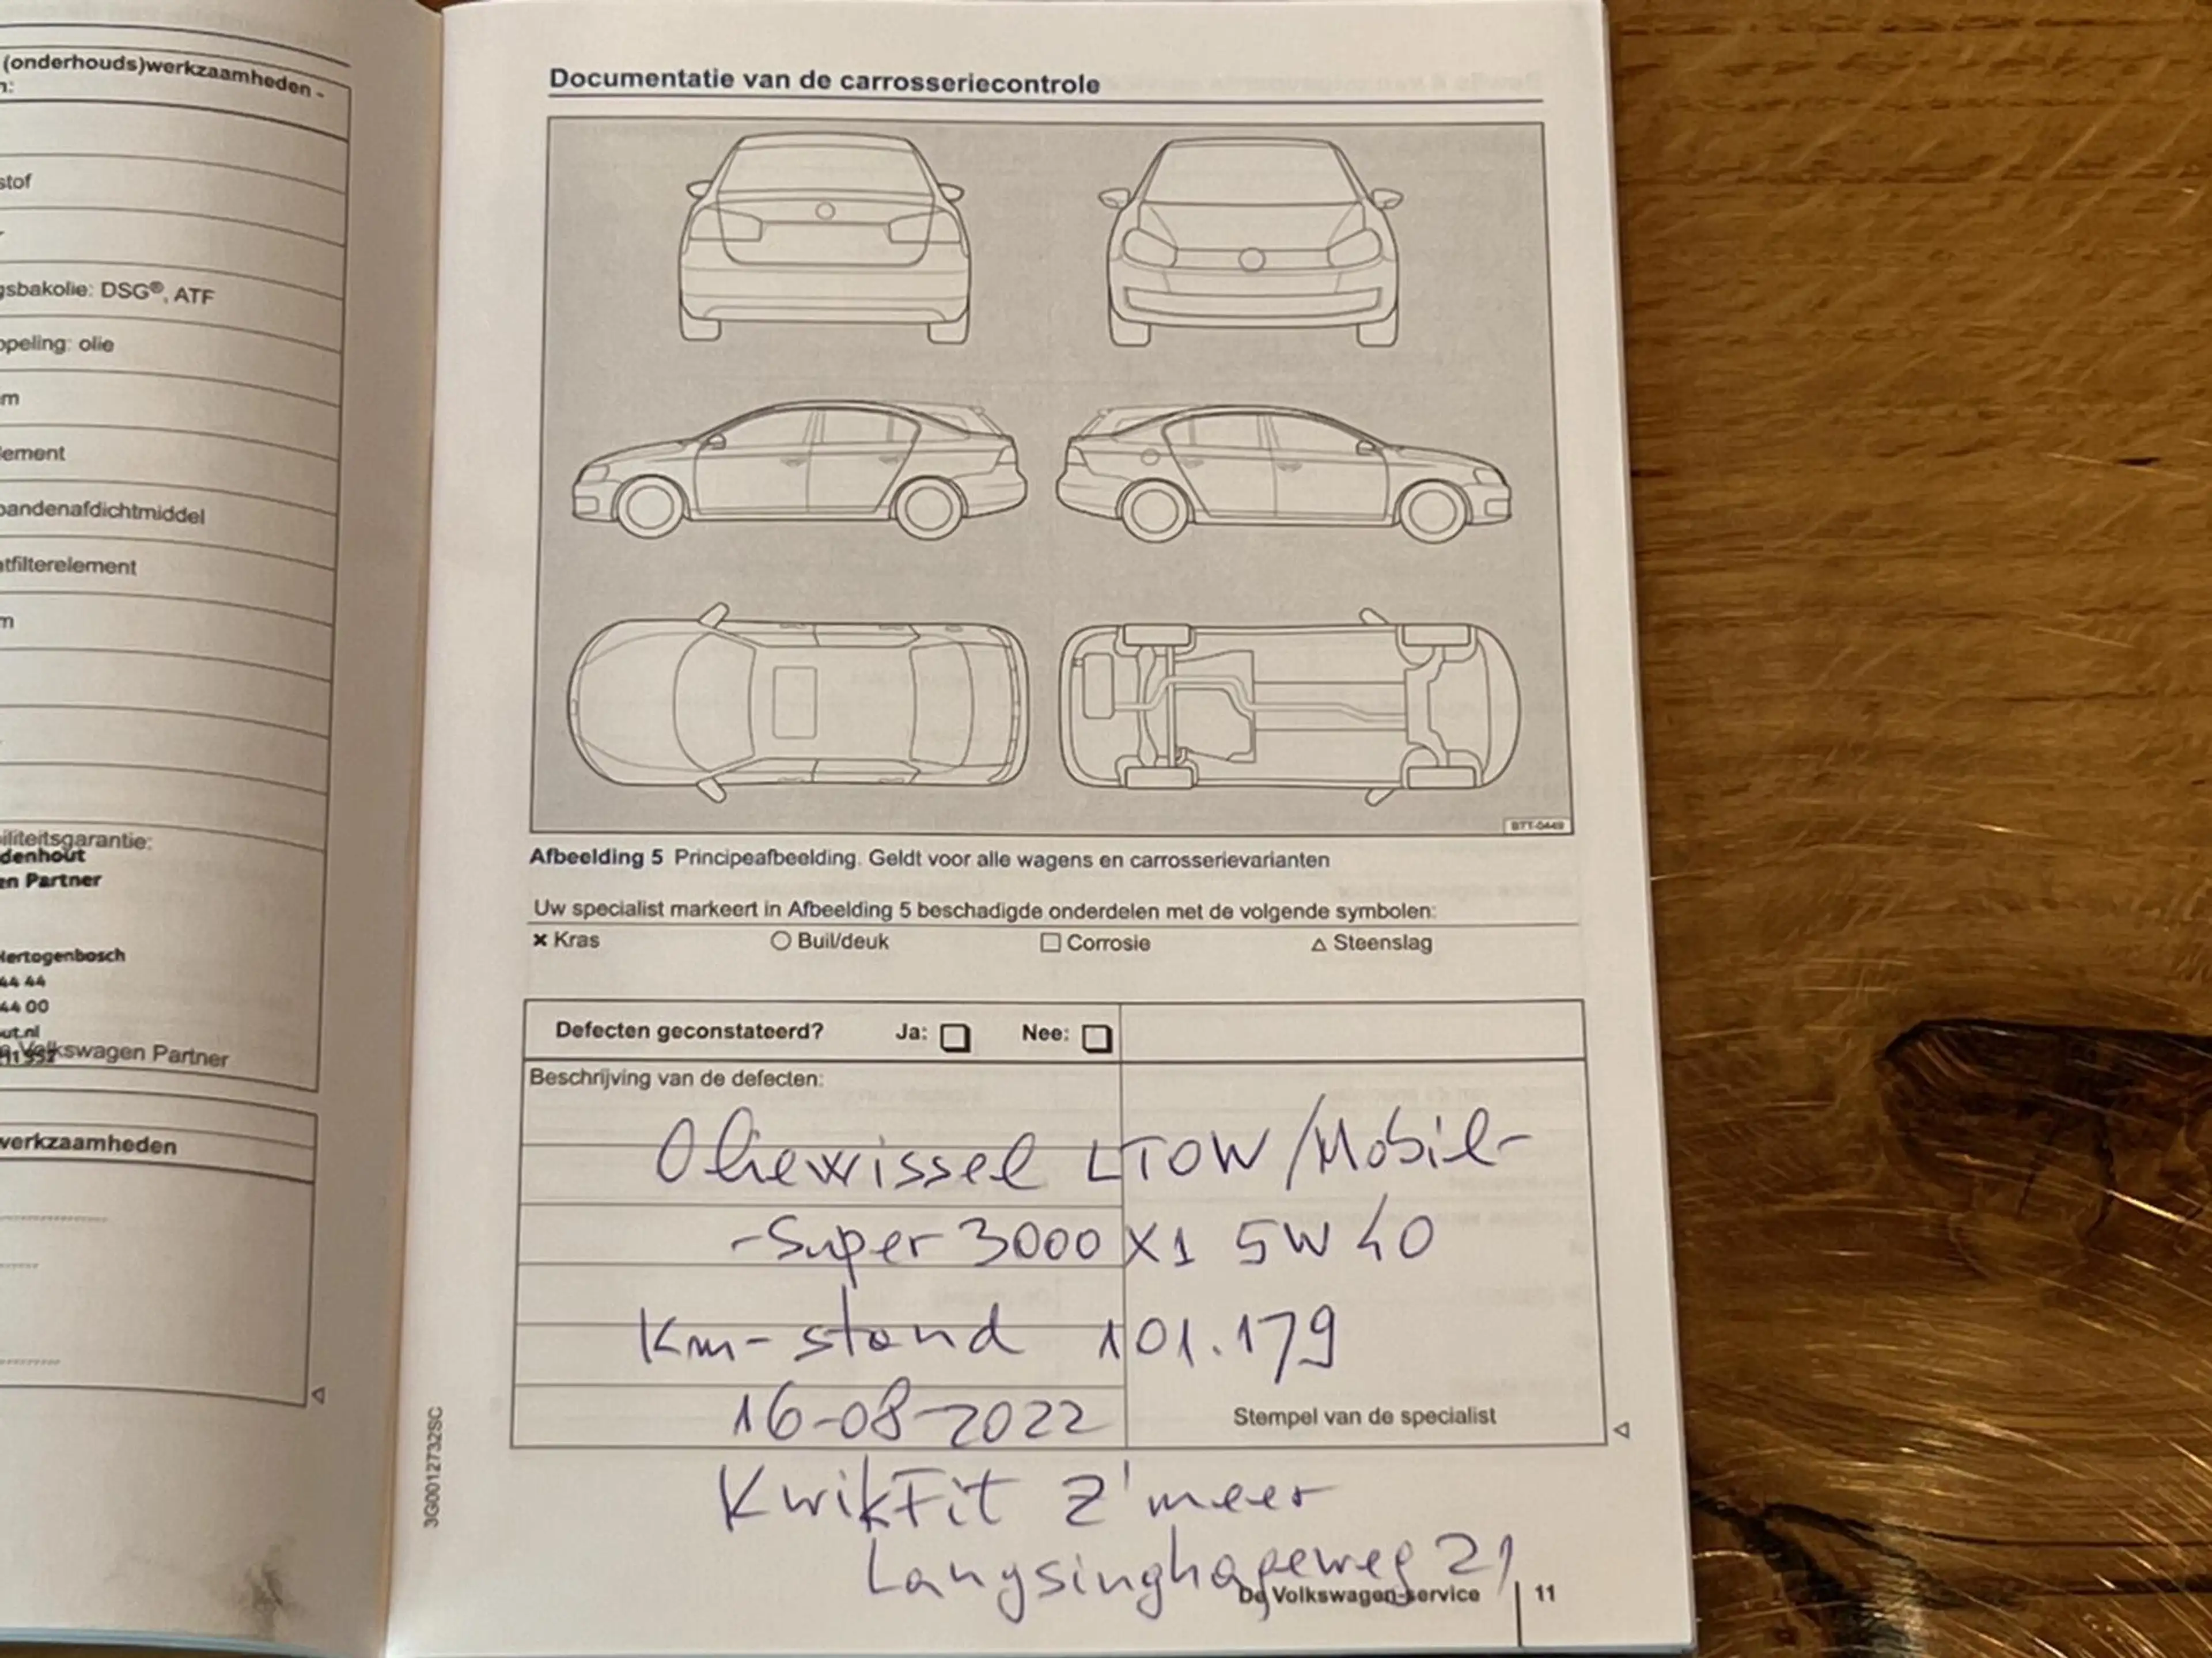 (onderhouds)werkzaamheden -
n:
stof
gsbakolie: DSG®, ATF
ppeling: olie
em
lement
bandenafdichtmiddel
tfilterelement
m
iliteitsgarantie:
denhout
en Partner
Hertogenbosch
44 44
44 00
ut.nl
Volkswagen Partner
werkzaamheden
3G0012732SC
Documentatie van de carrosseriecontrole
BTT-0449
Afbeelding 5 Principeafbeelding. Geldt voor alle wagens en carrosserievarianten
Uw specialist markeert in Afbeelding 5 beschadigde onderdelen met de volgende symbolen:
× Kras ○ Buil/deuk □ Corrosie △ Steenslag
Defecten geconstateerd? Ja: □ Nee: □
Beschrijving van de defecten:
Oliewissel /Mobil-
-Super 3000 X1 5W40
Km-stand 101.179
16-08-2022
Stempel van de specialist
KwikFit Z'meer
21
De Volkswagen-service | 11